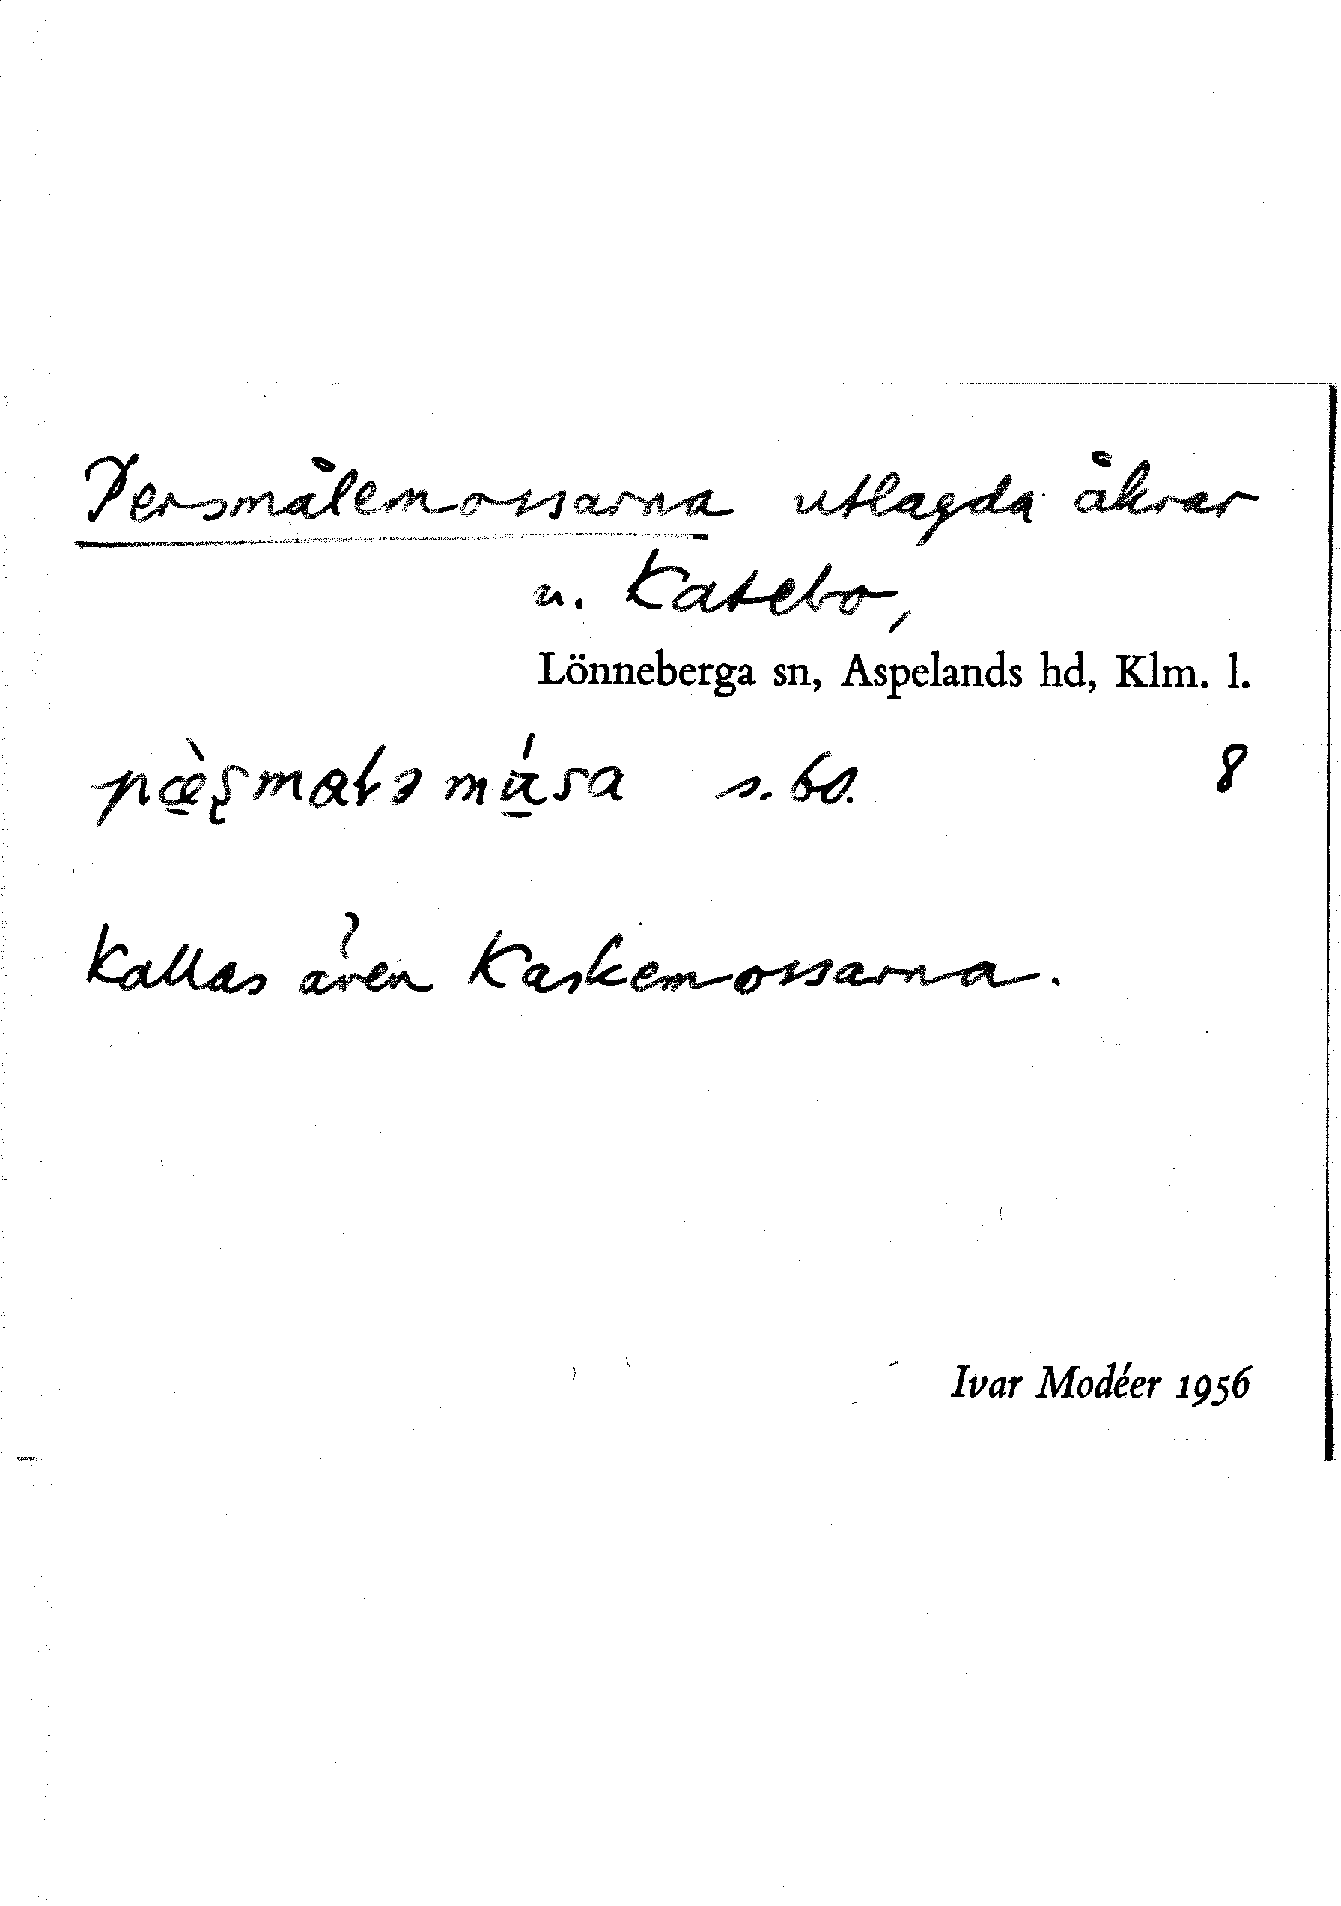 Persmålemossarna utlagda åkrar
u. Katebo,
Lönneberga sn, Aspelands hd, Klm. l.
s. bs. 8
Kallas även Kaskemossarna.
Ivar Modéer 1956